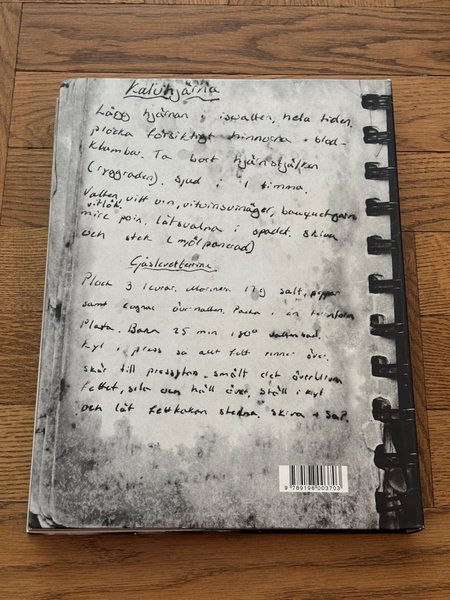 Kalvhjärna
Lägg hjärnan i isvatten, hela tiden,
plocka försiktigt hinnorna + blod-
klumbar. Ta bort hjärnstjälken
(ryggraden). Sjud i 1 timma.
Vatten, vitt vin, vitvinsvinäger, bouquetgarni
vitlök
mire poix. låt svalna i spadet. skiva
och stek (mjölpanerad)
Gåsleverterrine
Plock 3 levrar. Marinera 12g salt, peppar
samt cognac över natten. Packa i en
Plasta. Baka 25 min 180° vattenbad.
kyl i press så att fett rinner över.
skär till pressplan. smält det överblivna
fettet, sila och häll över, ställ i kyl
och låt fettkakan stelna. skiva +
9 789198 003703